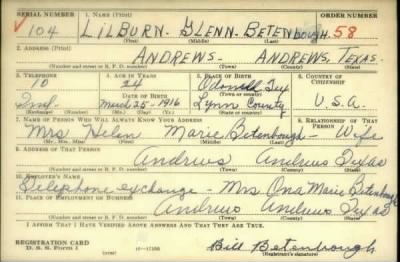 SERIAL NUMBER 1. NAME (Print) ORDER NUMBER
√ 104 LILBURN. GLENN. BETENBOUGH. 58
(First) (Middle) (Last)
2. ADDRESS (Print)
ANDREWS - ANDREWS, TEXAS.
(Number and street or R. F. D. number) (Town) (County) (State)
3. TELEPHONE 4. AGE IN YEARS 5. PLACE OF BIRTH 6. COUNTRY OF CITIZENSHIP
10 24 Odonnell Tex
DATE OF BIRTH (Town or county)
Ind. March-25-1916 Lynn County U.S.A.
(Exchange) (Number) (Mo.) (Day) (Yr.) (State or country)
7. NAME OF PERSON WHO WILL ALWAYS KNOW YOUR ADDRESS 8. RELATIONSHIP OF THAT PERSON
Mrs Helen Marie Betenbough - Wife
(Mr., Mrs., Miss) (First) (Middle) (Last)
9. ADDRESS OF THAT PERSON
Andrews Andrews Texas
(Number and street or R. F. D. number) (Town) (County) (State)
10. EMPLOYER'S NAME
Telephone exchange - Mrs Ona Marie Betenbough
11. PLACE OF EMPLOYMENT OR BUSINESS
Andrews Andrews Texas
(Number and street or R. F. D. number) (Town) (County) (State)
I AFFIRM THAT I HAVE VERIFIED ABOVE ANSWERS AND THAT THEY ARE TRUE.
REGISTRATION CARD
D. S. S. Form 1 Bill Betenbough
(Registrant's signature)